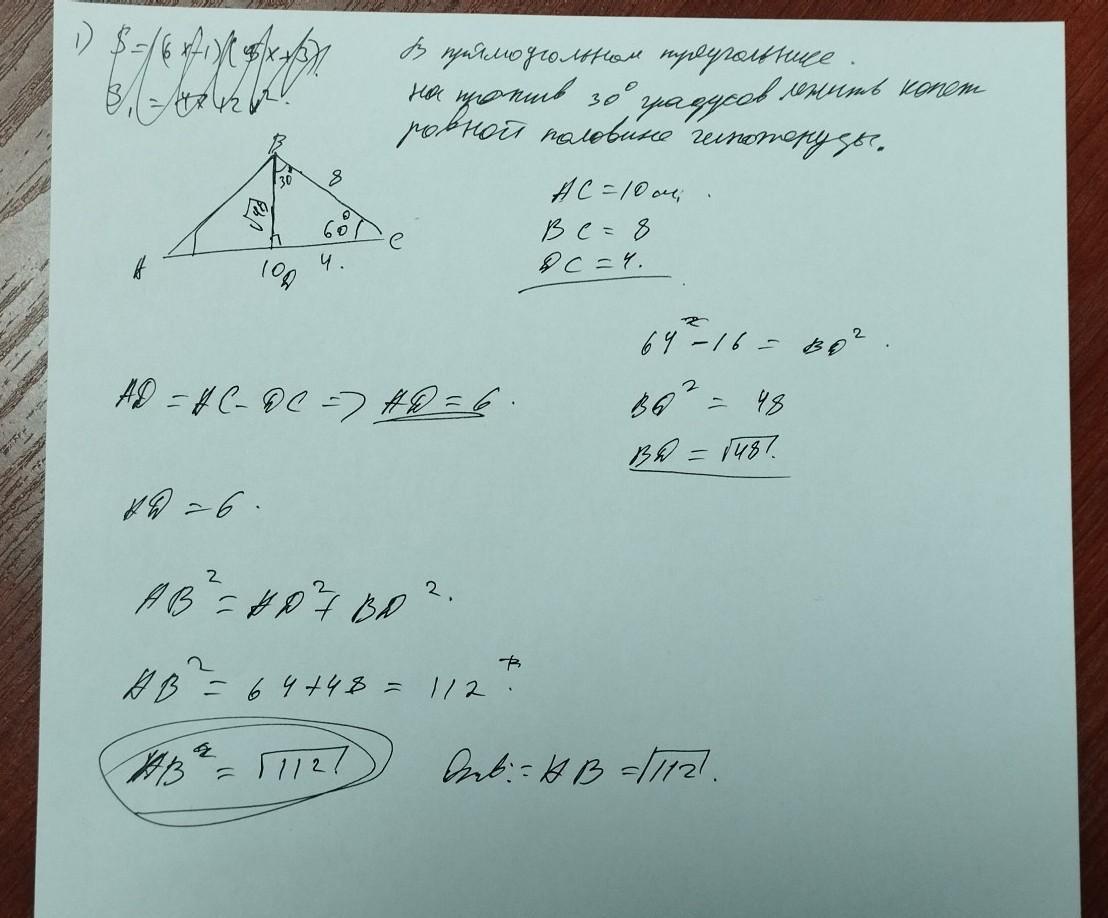 1) S = (6x-1)(45x+3).
В прямоугольном треугольнице.
на против 30° градусов лежить катет
ровной половине гипотенузы.
B
30°
8
√48
60°
A
10
D
4.
C
AC = 10 см.
BC = 8
DC = 4.
64 - 16 = BD².
AD = AC - DC => AD = 6.
BD² = 48
BD = √48.
AD = 6.
AB² = AD² + BD².
AB² = 64 + 48 = 112.
AB = √112.
Отв: = AB = √112.